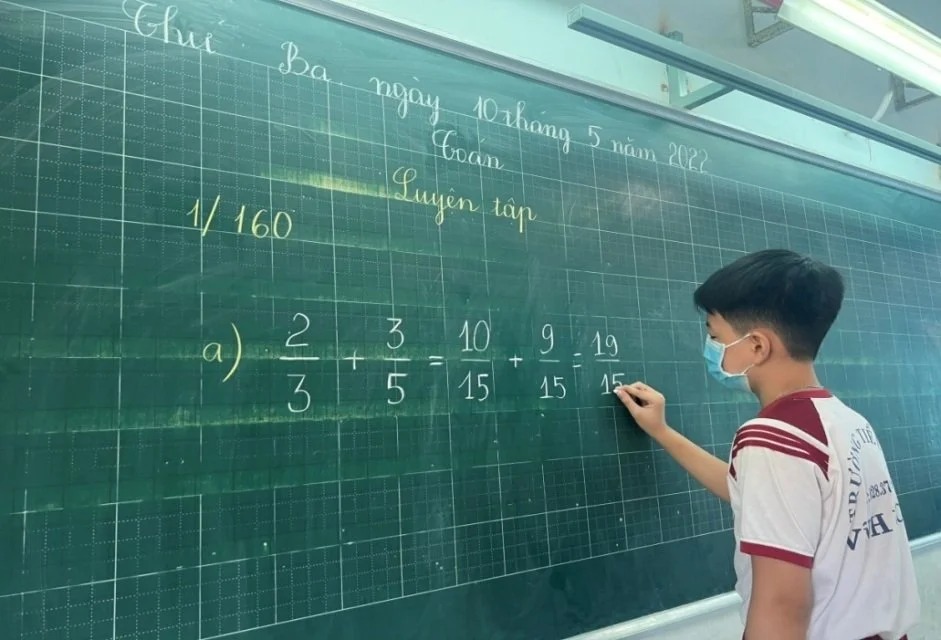 Thứ Ba ngày 10 tháng 5 năm 2022
Toán
Luyện tập
1/160
a) 2/3 + 3/5 = 10/15 + 9/15 = 19/15
TRƯỜNG